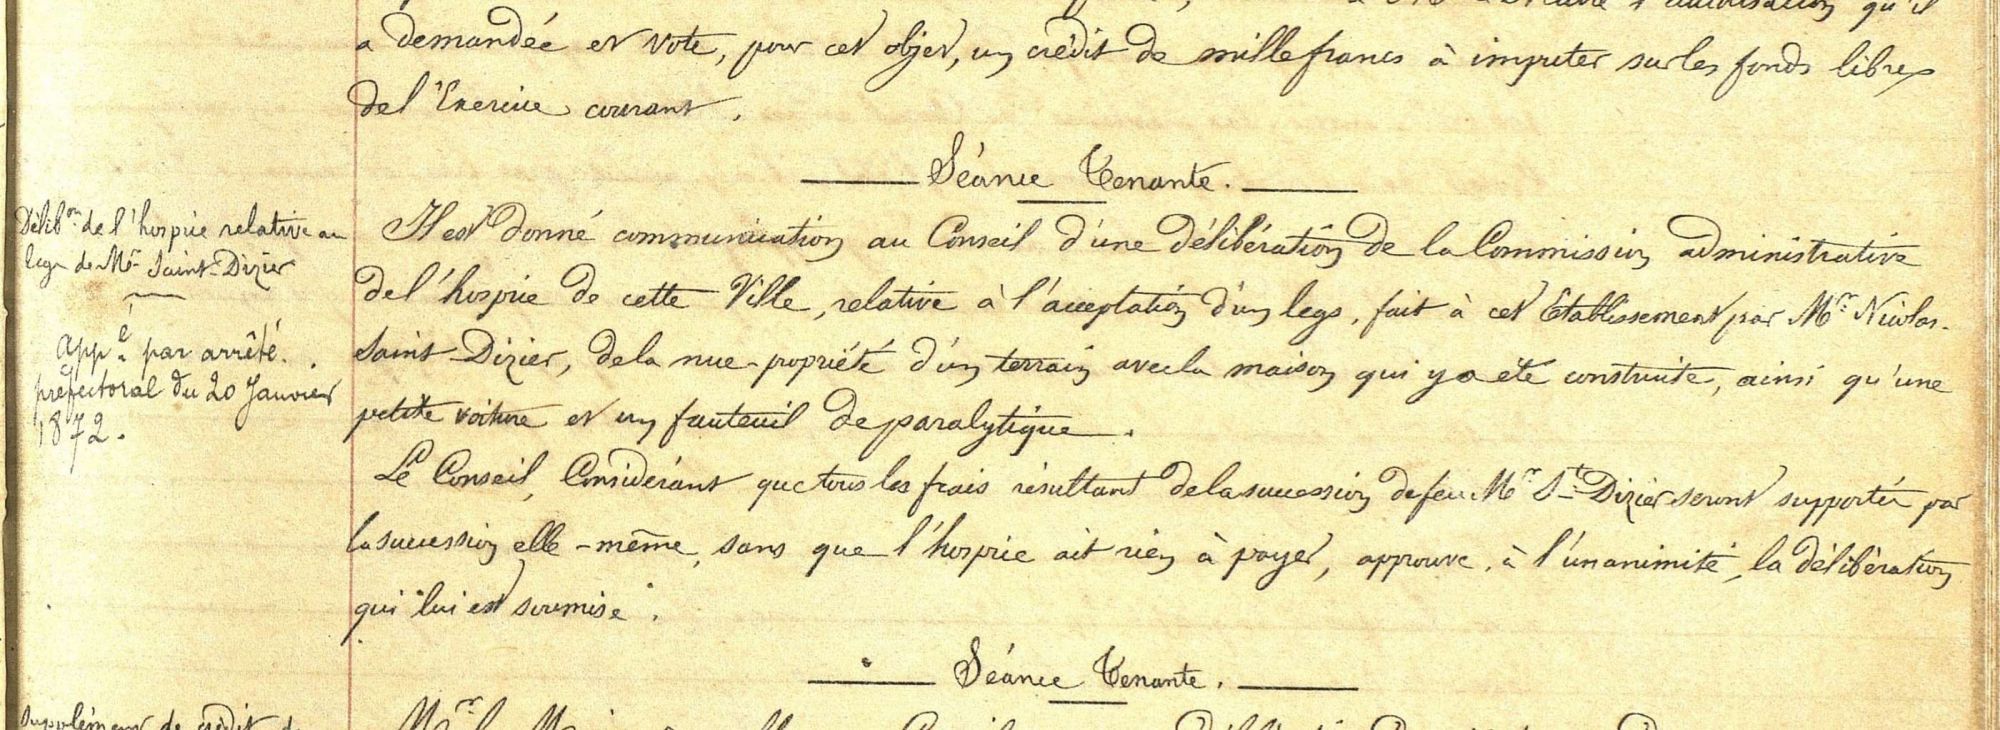 l'autorisation qu'il
a demandée et vote, pour cet objet, un crédit de mille francs à imputer sur les fonds libres
de l'Exercice courant.
Séance Tenante.
Délib.on de l'hospice relative au
legs de Mr Saint-Dizier
App.é par arrêté
préfectoral du 20 Janvier
1872.
Il est donné communication au Conseil d'une délibération de la Commission administrative
de l'hospice de cette Ville, relative à l'acceptation d'un legs, fait à cet Etablissement par Mr Nicolas-
Saint-Dizier, de la nue-propriété d'un terrain avec la maison qui y a été construite, ainsi qu'une
petite voiture et un fauteuil de paralytique.
Le Conseil, Considérant que tous les frais résultant de la succession de feu Mr St Dizier seront supportés par
la succession elle-même, sans que l'hospice ait rien à payer, approuve, à l'unanimité, la délibération
qui lui est soumise.
Séance Tenante.
Supplément de crédit
Mr le Maire